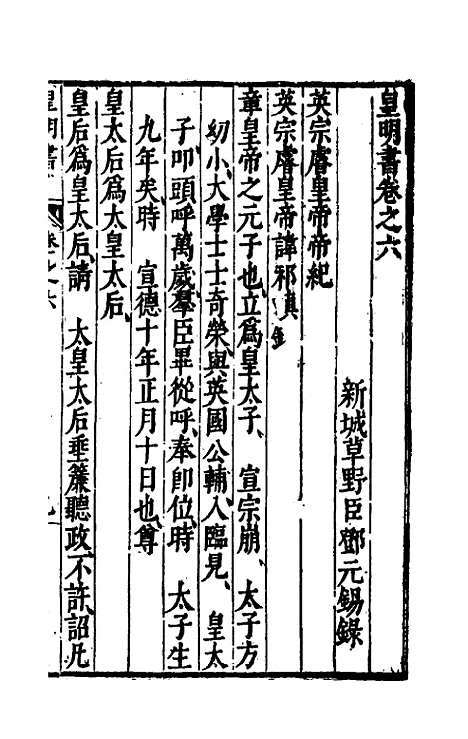 皇明書卷之六
新城草野臣鄧元錫錄
英宗睿皇帝帝紀
英宗睿皇帝諱祁鎮
章皇帝之元子也立爲皇太子、宣宗崩、太子方
幼小、大學士士奇榮、與英國公輔、入臨見、皇太
子、叩頭呼萬歲、羣臣畢從呼、奉即位、時 太子生
九年矣、時 宣德十年正月十日也、尊
皇太后爲太皇太后、
皇后爲皇太后、請 太皇太后垂簾聽政、不許、詔凡
皇明書 卷之六